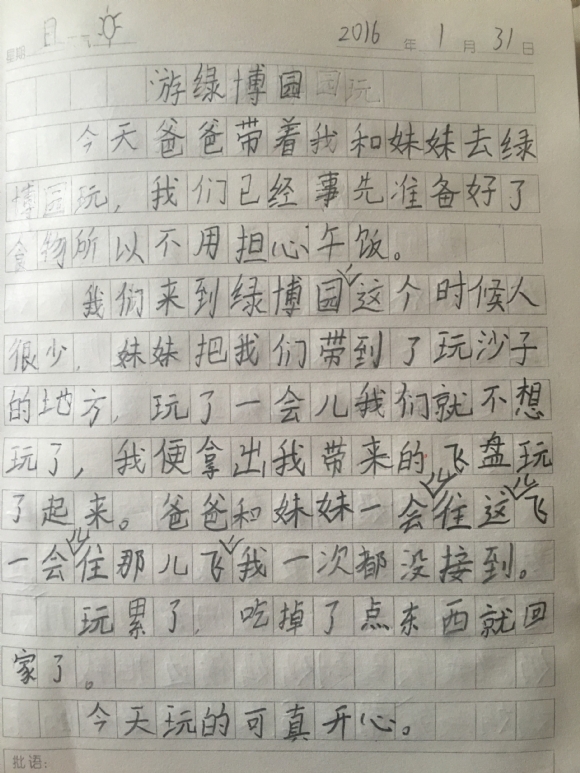 星期 日 2016 年 1 月 31 日
游绿博园园玩
今天爸爸带着我和妹妹去绿
博园玩，我们已经事先准备好了
食物所以不用担心午饭。
我们来到绿博园，这个时候人
很少，妹妹把我们带到了玩沙子
的地方，玩了一会儿我们就不想
玩了，我便拿出我带来的飞盘玩
了起来。爸爸和妹妹一会儿往这儿飞
一会儿住那儿飞，我一次都没接到。
玩累了，吃掉了点东西就回
家了。
今天玩的可真开心。
批语：